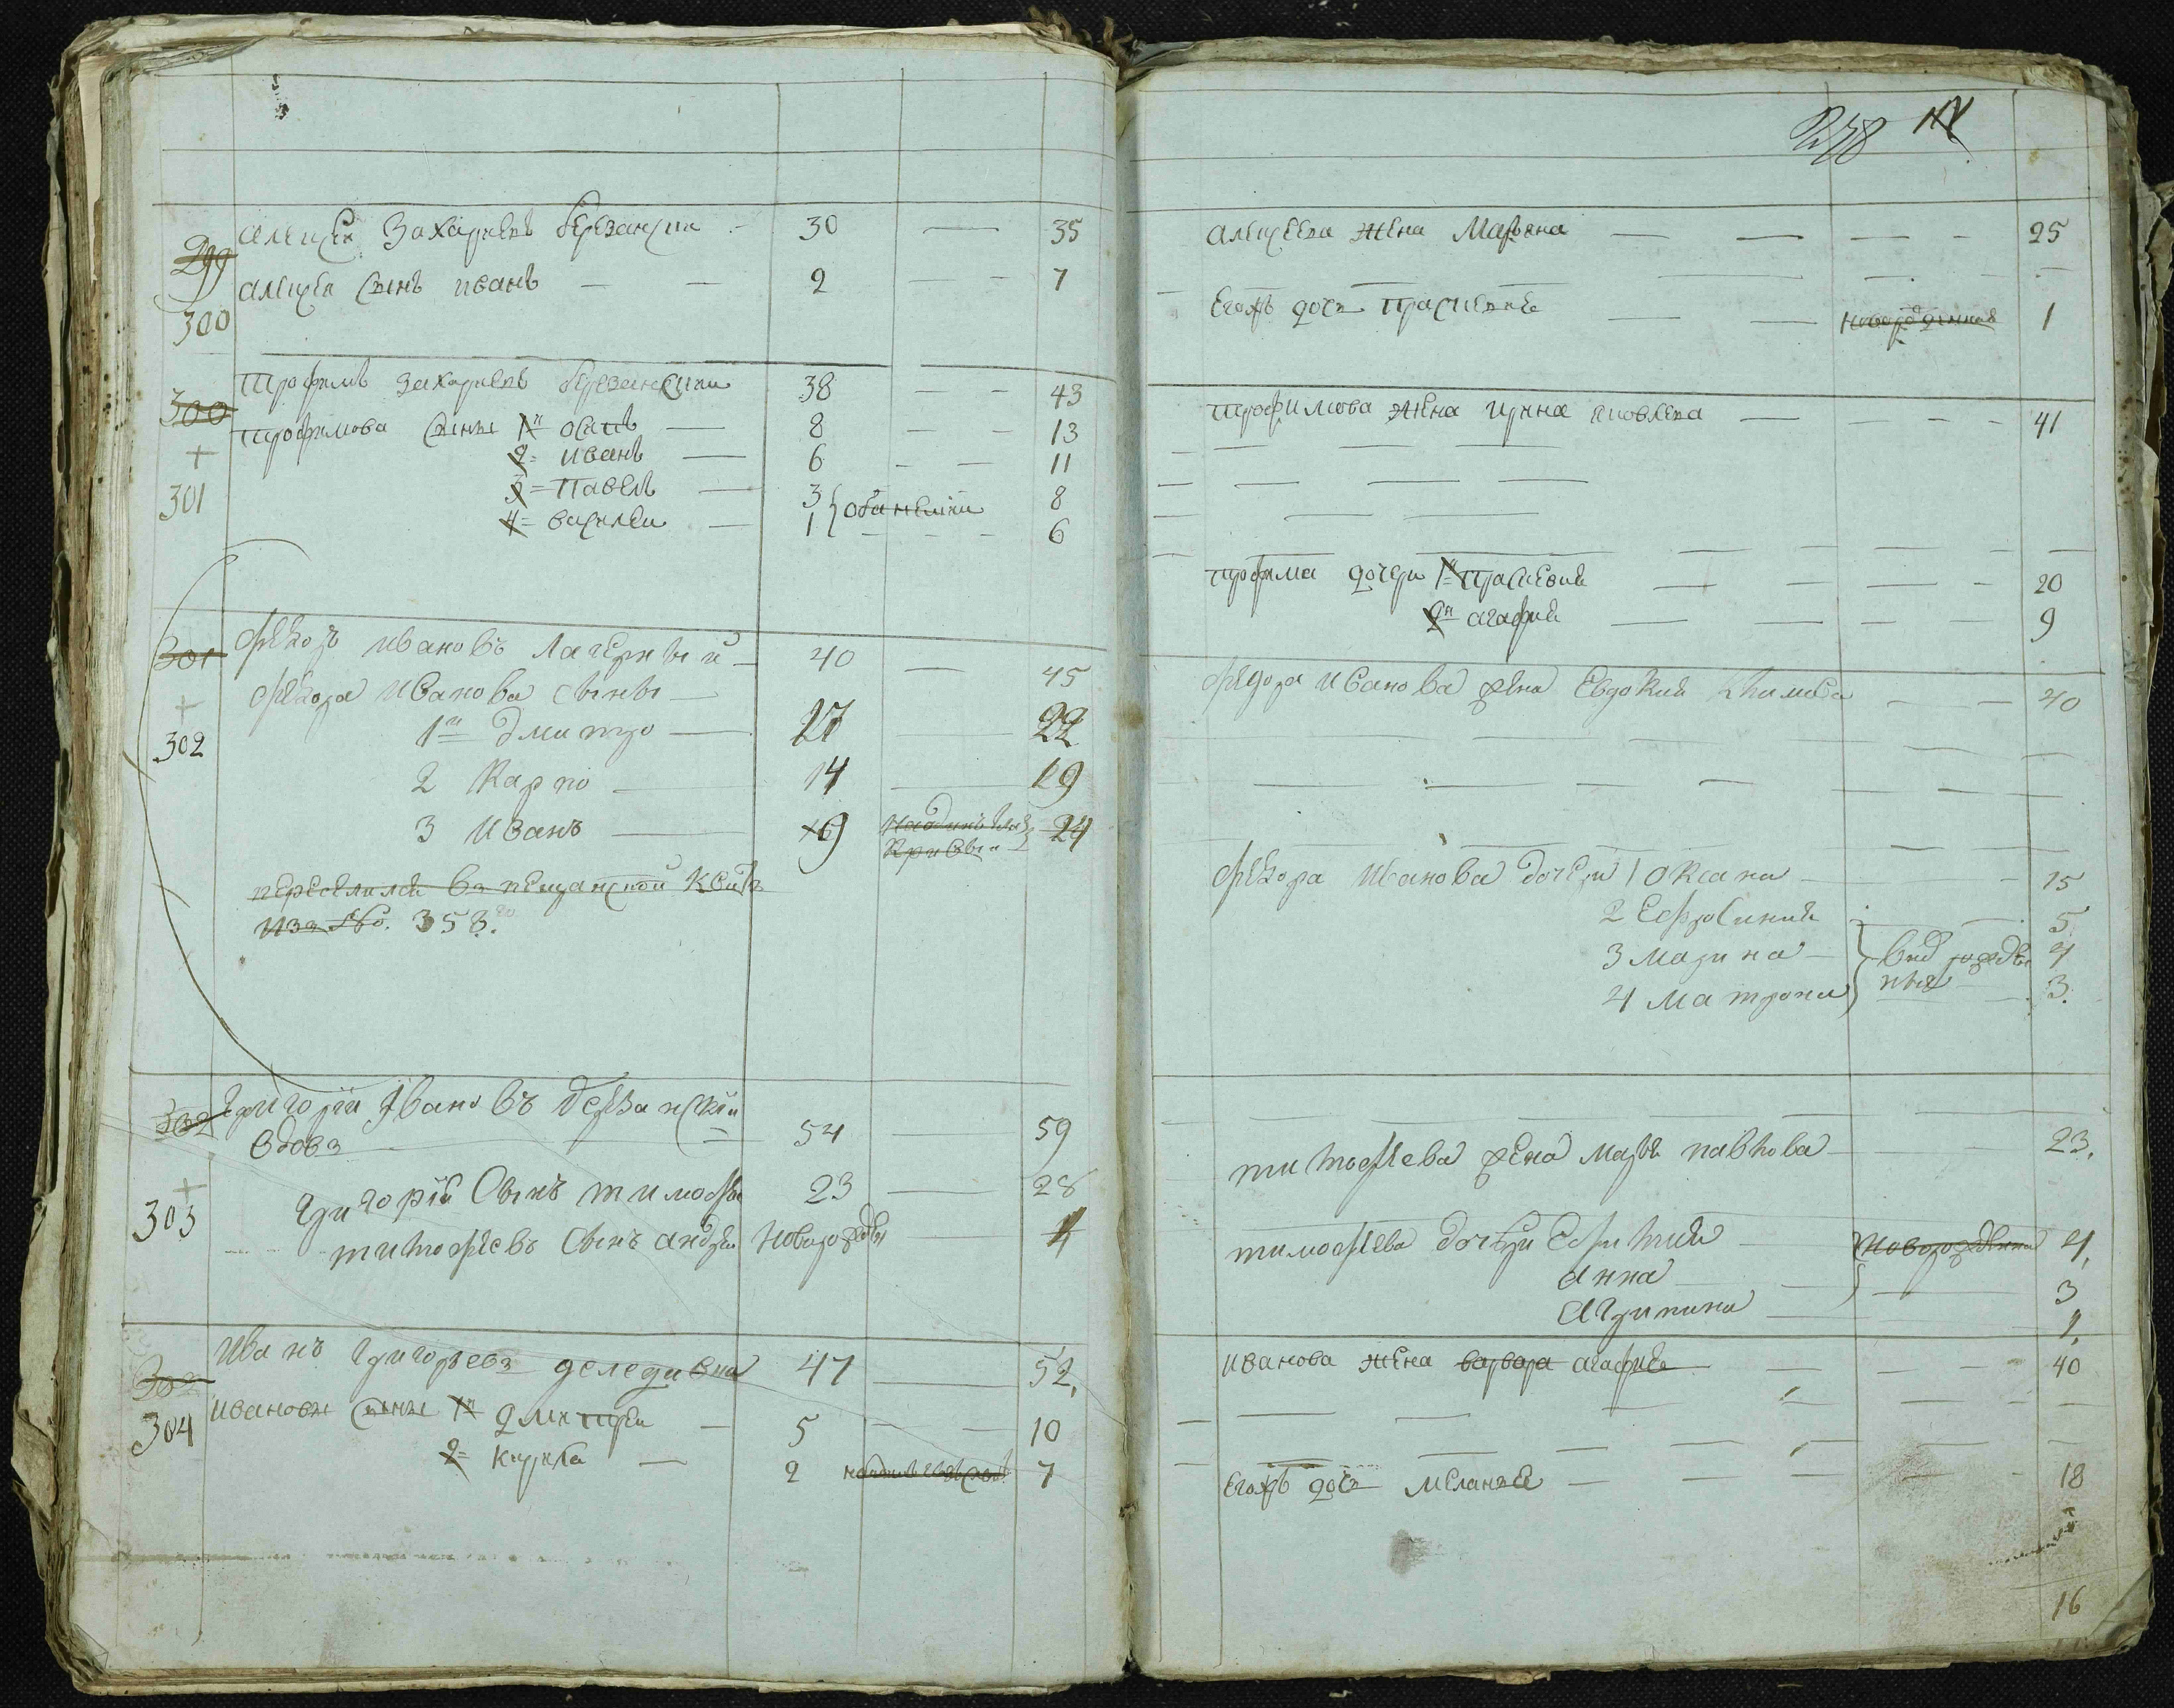 299 Алексей Захариевъ Березански 30 — 35
300 Алексея сынъ Иванъ — — 2 — — 7
300 Трофимъ Захариевъ Березански 38 — — 43
+ Трофимова сыны 1й Осипъ — 8 — — 13
2 = Иванъ — 6 — — 11
301 3 = Павелъ — 3 8
4 = Василеи — 1 6
301 Федоръ Ивановъ Лагерный — 40 — 45
+ Федора Иванова сыны —
302 1й Дмитро — 17 — 22
2 Карпо — 14 — 19
3 Иванъ — 9 24
переселился въ
изъ 358.
302 Григорій Ивановъ Березанскій
вдовъ 54 — 59
+ 303 Григорій сынъ Тимофей 23 — 28
Тимофѣевъ сынъ Андрей новорожден 4
302 Иванъ Григорьевъ 47 — 52.
304 Ивановы сыны 1й Дмитрей — 5 — — 10
2 = Кирила — 2 7
Алексеева жена Марьяна — — — — 25
Егожъ дочь Прасковья — — новорожденная 1
Трофимова жена Ирина Яковлева — — — — 41
Трофима дочери 1я Прасковия — — — — 20
2я Агафия — — — — 9
Федора Иванова жена Евдокия — — 40
Федора Иванова дочери 1 Оксана — 15
2 Ефросиния 5
3 Марина — 4
4 Матрона 3.
Тимофеева жена Марья Павлова — 23.
Тимофеева дочери Ефимия — новорожденна 4.
Анна — 3
Агрипина — 1.
Иванова жена варвара Агафия — — — — 40
Егожъ дочь Меланья — — — — 18
16